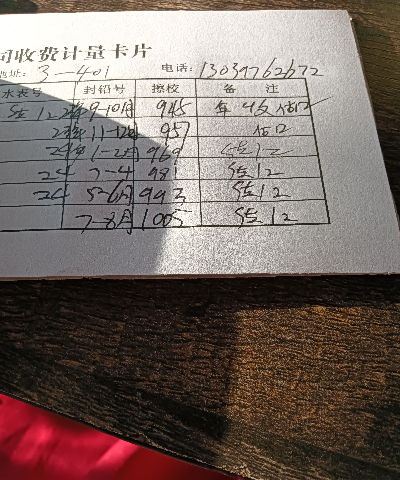 司收费计量卡片
地址: 3-401 电话: 13039762672
水表号 封铅号 擦校 备 注
12 9-10月 945 年 收
23年 11-12月 957
24年 1-2月 969 12
24 7-4 981 12
24 5-6月 993 12
7-8月 1005 12